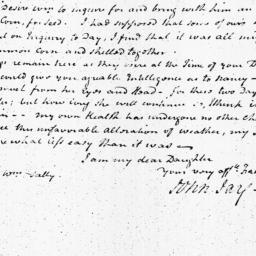 desire Wm. to inquire for and bring with him an
Corn, for seed. I had supposed that some of ours
on Inquiry to Day, I find that it was all mi
common Corn and shelled together.
remain here as they were at the Time of your D
could give you agreable Intelligence as to Nancy
from her Eyes and Head - for these two Day
; but how long she will continue so, I think
- my own Health has undergone no other Ch
the unfavorable alteration of weather, my
what less easy than it was -
I am my dear Daughter
Your very affte. Fa
John Jay -
Wm. Sally